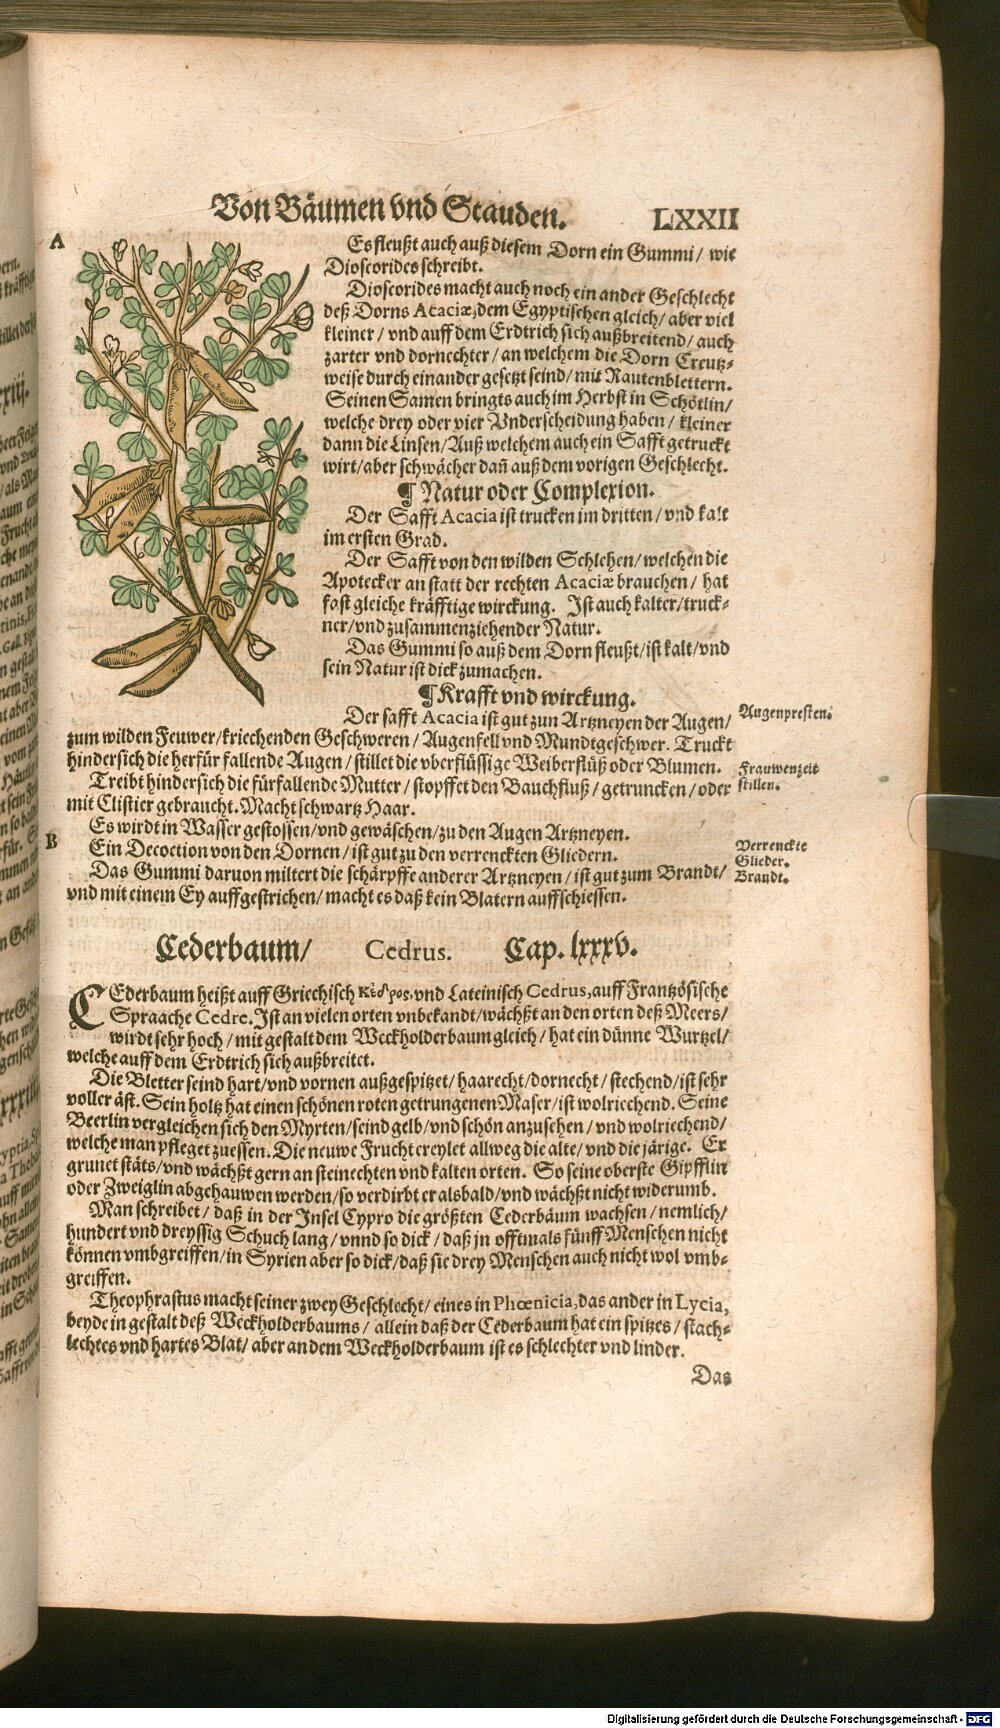 Von Bäumen vnd Stauden. LXXII
A
Es fleußt auch auß diesem Dorn ein Gummi/ wie
Dioscorides schreibt.
Dioscorides macht auch noch ein ander Geschlecht
deß Dorns Acaciæ, dem Egyptischen gleich/ aber viel
kleiner/ vnd auff dem Erdtrich sich außbreitend/ auch
zarter vnd dornechter/ an welchem die Dorn Creutz-
weise durch einander gesetzt seind/ mit Rautenblettern.
Seinen Samen bringts auch im Herbst in Schötlin/
welche drey oder vier Vnderscheidung haben/ kleiner
dann die Linsen/ Auß welchem auch ein Safft getruckt
wirt/ aber schwächer dañ auß dem vorigen Geschlecht.
¶ Natur oder Complexion.
Der Safft Acacia ist trucken im dritten/ vnd kalt
im ersten Grad.
Der Safft von den wilden Schlehen/ welchen die
Apotecker an statt der rechten Acaciæ brauchen/ hat
fast gleiche kräfftige wirckung. Ist auch kalter/ truck-
ner/ vnd zusammenziehender Natur.
Das Gummi so auß dem Dorn fleußt/ ist kalt/ vnd
sein Natur ist dick zumachen.
¶ Krafft vnd wirckung.
Der safft Acacia ist gut zun Artzneyen der Augen/
zum wilden Feuwer/ kriechenden Geschweren/ Augenfell vnd Mundtgeschwer. Truckt
hindersich die herfür fallende Augen/ stillet die vberflüssige Weiberflüß oder Blumen.
Treibt hindersich die fürfallende Mutter/ stopffet den Bauchfluß/ getruncken/ oder
mit Clistier gebraucht. Macht schwartz Haar.
Es wirdt in Wasser gestossen/ vnd gewäschen/ zu den Augen Artzneyen.
Ein Decoction von den Dornen/ ist gut zu den verrenckten Gliedern.
Das Gummi daruon miltert die schärpffe anderer Artzneyen/ ist gut zum Brandt/
vnd mit einem Ey auffgestrichen/ macht es daß kein Blatern auffschiessen.
Augenpresten.
Frauwenzeit
stillen.
B
Verrenckte
Glieder.
Brandt.
Cederbaum/ Cedrus. Cap. lxxxv.
CEderbaum heißt auff Griechisch Κέδρος, vnd Lateinisch Cedrus, auff Frantzösische
Spraache Cedre. Ist an vielen orten vnbekandt/ wächßt an den orten deß Meers/
wirdt sehr hoch/ mit gestalt dem Weckholderbaum gleich/ hat ein dünne Wurtzel/
welche auff dem Erdtrich sich außbreitet.
Die Bletter seind hart/ vnd vornen außgespitzet/ haarecht/ dornecht/ stechend/ ist sehr
voller äst. Sein holtz hat einen schönen roten getrungenen Maser/ ist wolriechend. Seine
Beerlin vergleichen sich den Myrten/ seind gelb/ vnd schön anzusehen/ vnd wolriechend/
welche man pfleget zuessen. Die neuwe Frucht ereylet allweg die alte/ vnd die järige. Er
grunet stäts/ vnd wächßt gern an steinechten vnd kalten orten. So seine oberste Gipfflin
oder Zweiglin abgehauwen werden/ so verdirbt er alsbald/ vnd wächßt nicht widerumb.
Man schreibet/ daß in der Insel Cypro die größten Cederbäum wachsen/ nemlich/
hundert vnd dreyssig Schuch lang/ vnnd so dick/ daß jn offtmals fünff Menschen nicht
können vmbgreiffen/ in Syrien aber so dick/ daß sie drey Menschen auch nicht wol vmb-
greiffen.
Theophrastus macht seiner zwey Geschlecht/ eines in Phœnicia, das ander in Lycia,
beyde in gestalt deß Weckholderbaums/ allein daß der Cederbaum hat ein spitzes/ stach-
lechtes vnd hartes Blat/ aber an dem Weckholderbaum ist es schlechter vnd linder.
Das
Digitalisierung gefördert durch die Deutsche Forschungsgemeinschaft - DFG